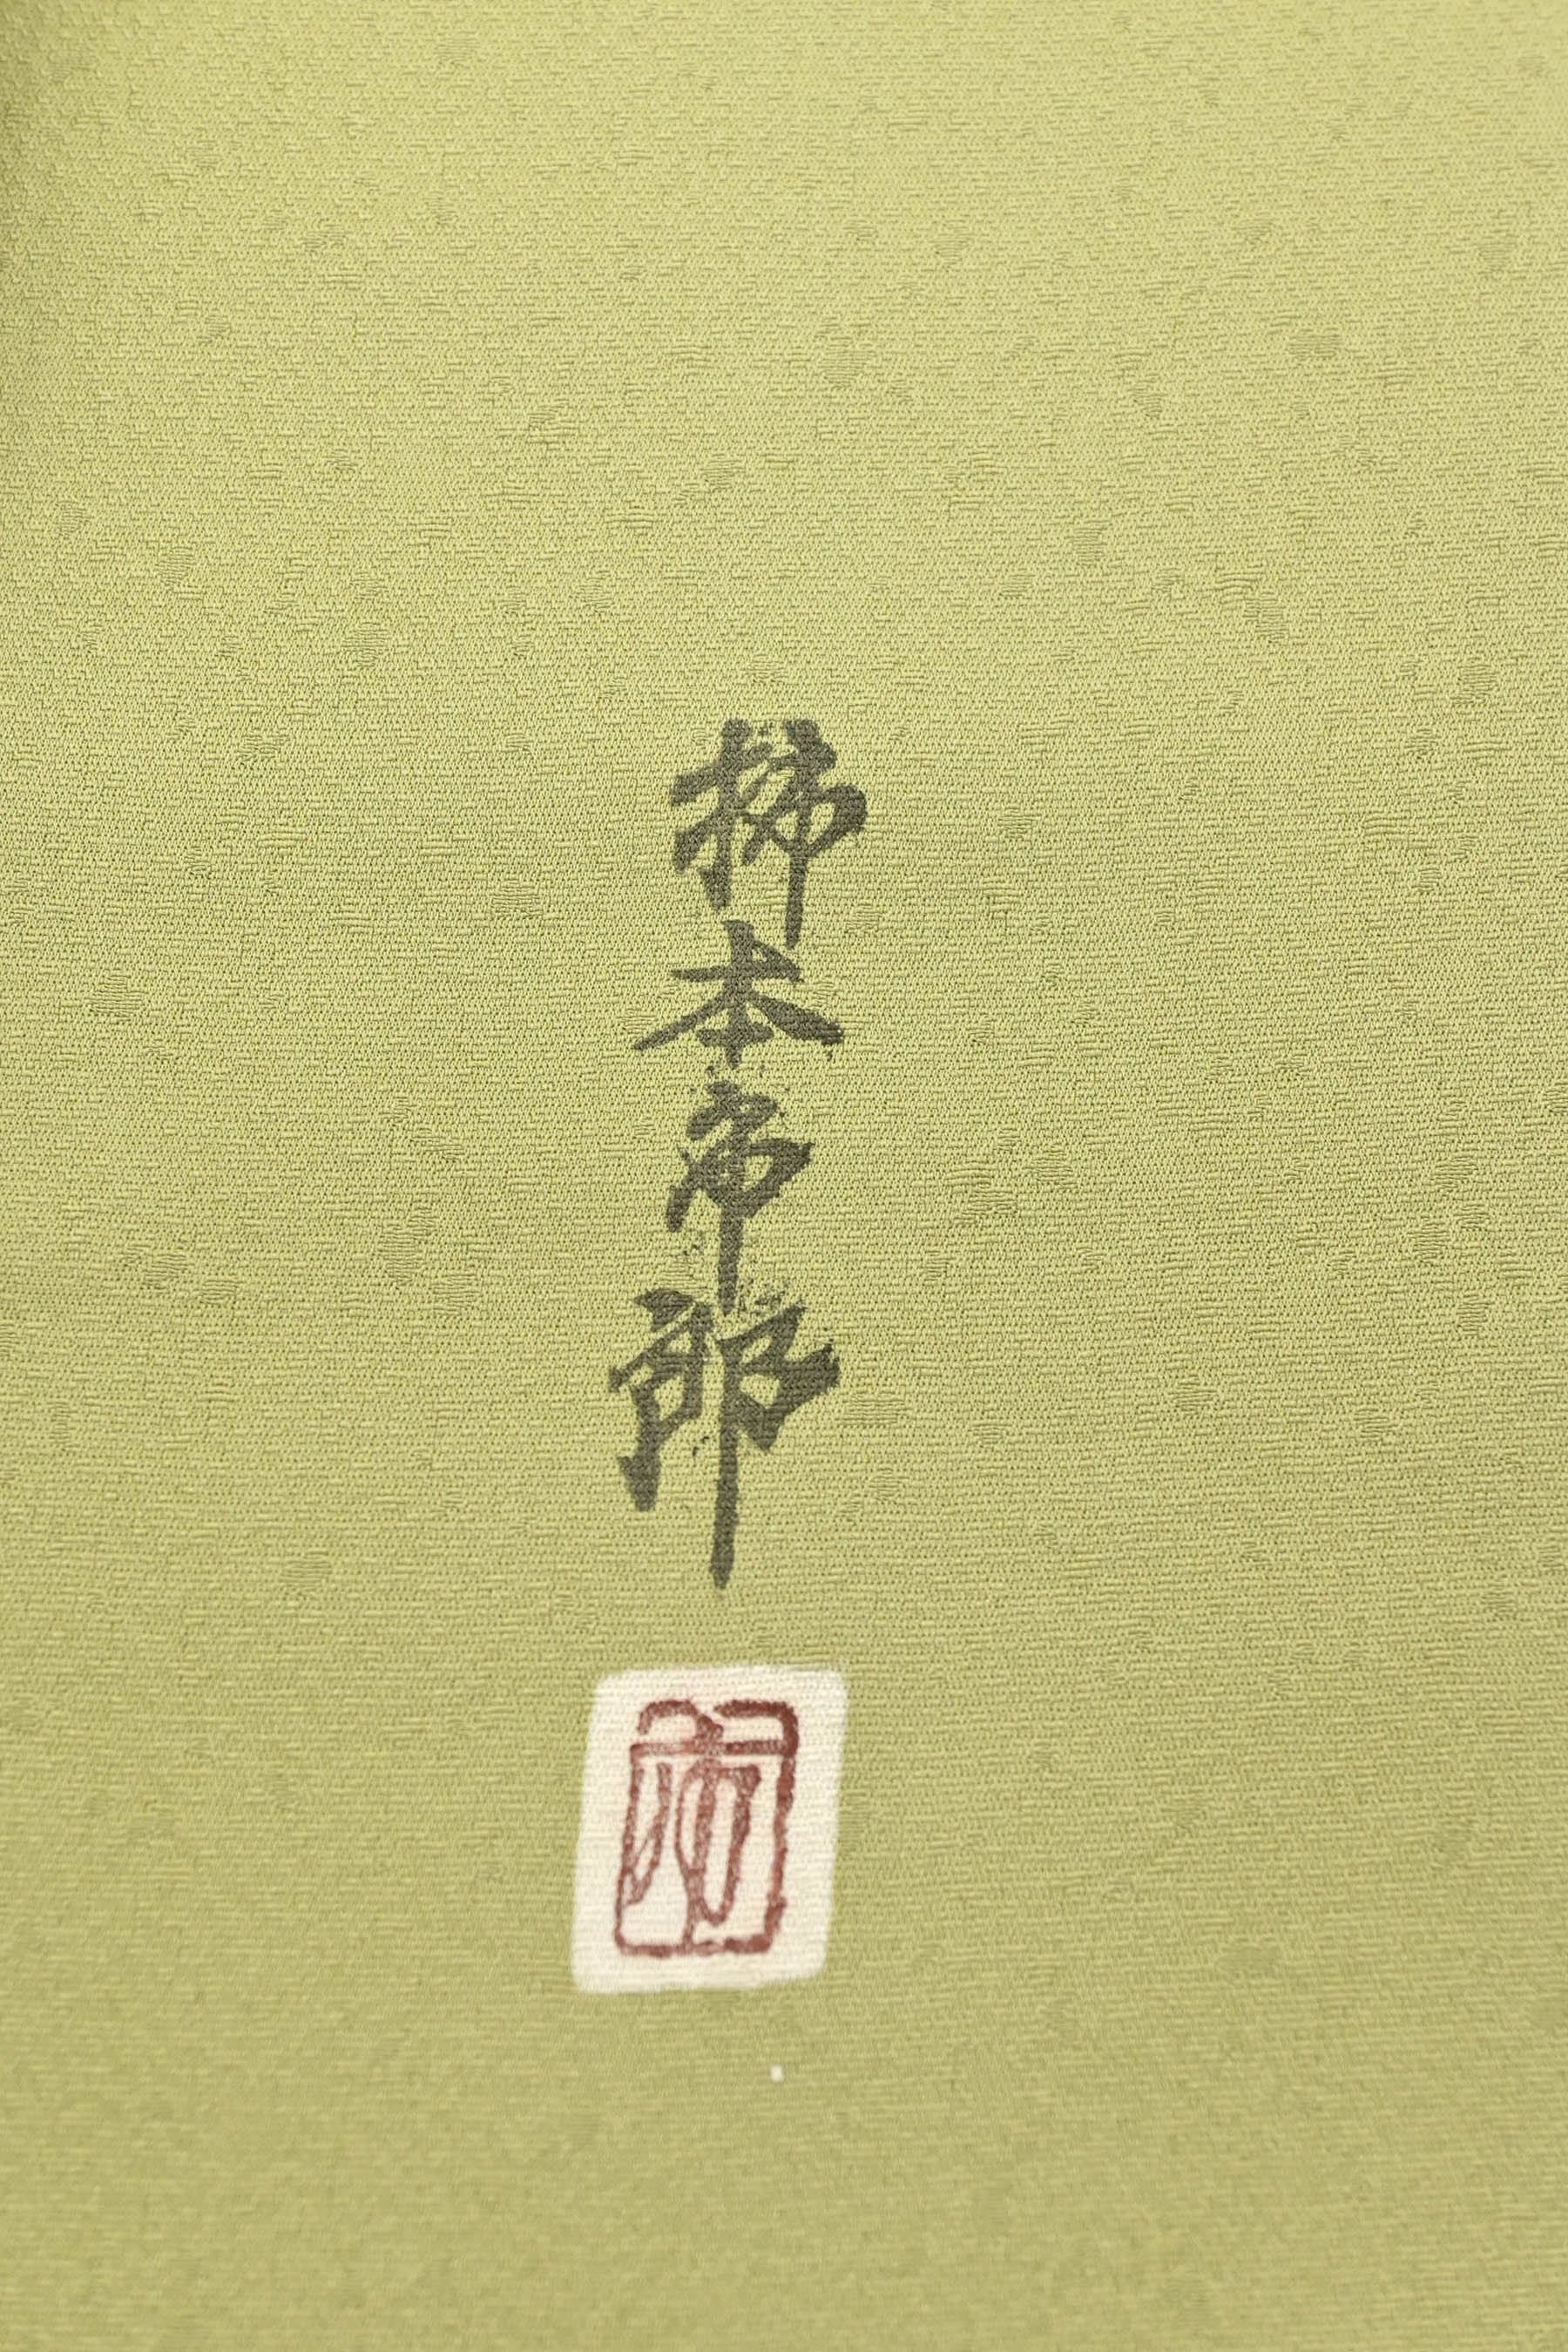 柿本市郎